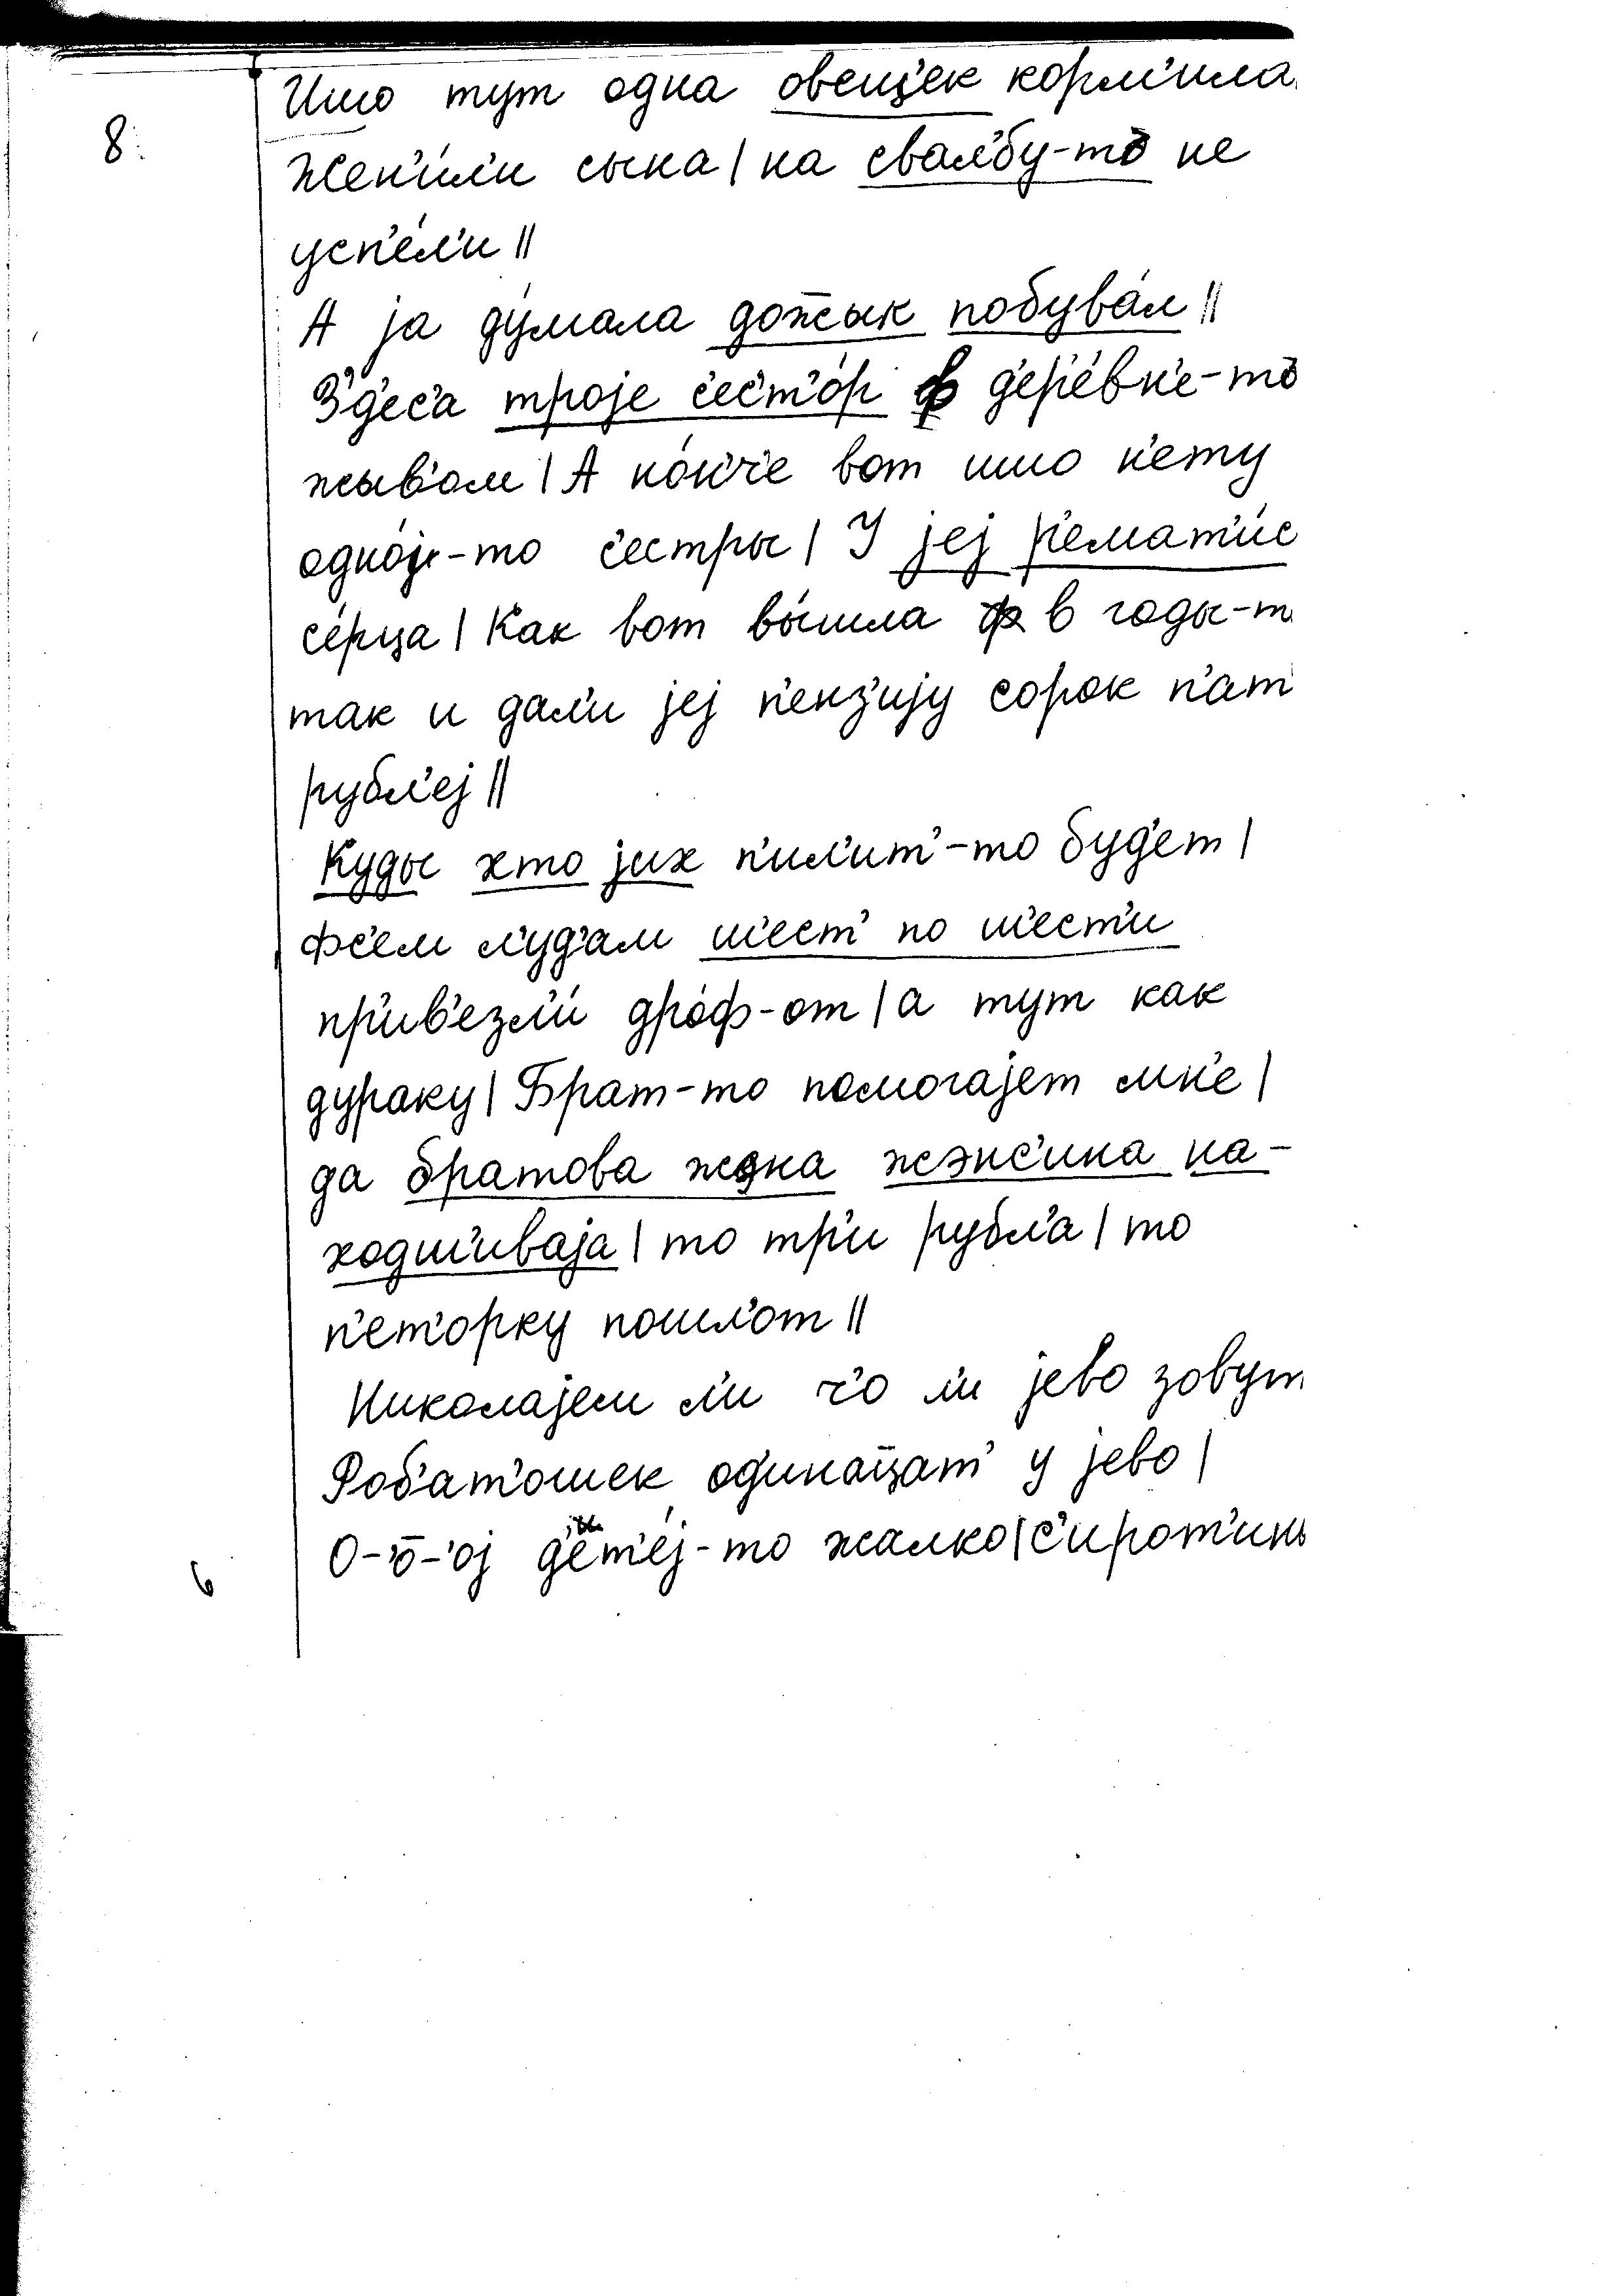 8.
Ишо тут одна овец'ек корм'ила
Жен'и́л'и сына | на свал'бу-то не
усп'е́л'и ||
А jа ду́мала дож̅ык побува́л ||
З'д'ес'а троjе с'ес'т'о́р в д'ер'е́вн'е-то
жыв'ом | А но́н'ч'е вот ишо н'ету
одно́jи-то с'естры | У jеj р'емат'и́с
с'е́рца | Как вот вы́шла в годы-т
так и дал'и jеj п'енз'иjу сорок п'ат
рубл'еj ||
Куды хто jих п'ил'ит'-то буд'ет |
фс'ем л'уд'ам ш'ест' по ш'ест'и
пр'ив'езл'и́ дро́ф-от | а тут как
дураку | Брат-то помогаjет мн'е |
да братова жона жэнс'ина на-
ходш'иваjа | то тр'и рубл'а | то
п'ет'орку пошл'от ||
Николаjем л'и ч'о л'и jево зовут
Роб'ат'ошек од'инац̅ат' у jево |
О-'о̄-'оj д'ет'е́j-то жалко | С'ирот'инь
6